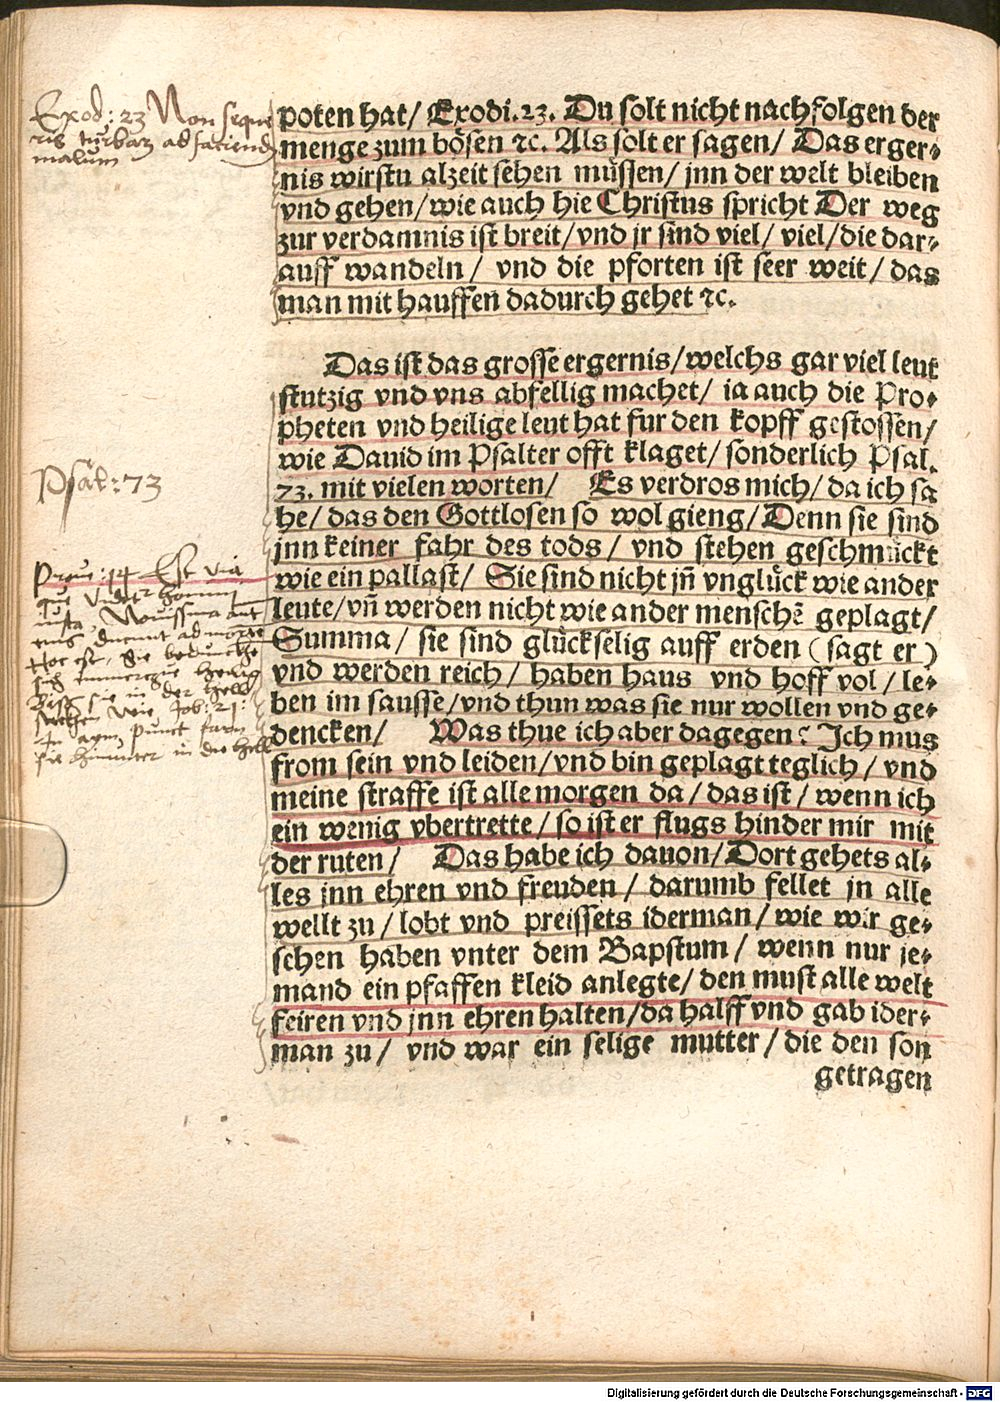 Exod: 23 Non seque
ris turbam ad faciend
malum
poten hat/ Exodi.23. Du solt nicht nachfolgen der
menge zum bösen ꝛc. Als solt er sagen/ Das erger⸗
nis wirstu alzeit sehen müssen/ jnn der welt bleiben
vnd gehen/ wie auch hie Christus spricht Der weg
zur verdamnis ist breit/ vnd jr sind viel/ viel/ die dar⸗
auff wandeln/ vnd die pforten ist seer weit/ das
man mit hauffen dadurch gehet ꝛc.
Das ist das grosse ergernis/ welchs gar viel leut
stutzig vnd vns abfellig machet/ ia auch die Pro⸗
pheten vnd heilige leut hat fur den kopff gestossen/
wie Dauid im Psalter offt klaget/ sonderlich Psal.
73. mit vielen worten/ Es verdros mich/ da ich sa
he/ das den Gottlosen so wol gieng/ Denn sie sind
jnn keiner fahr des tods/ vnd stehen geschmückt
wie ein pallast/ Sie sind nicht jñ vnglück wie ander
leute/ vñ werden nicht wie ander menschẽ geplagt/
Summa/ sie sind glückselig auff erden (sagt er)
vnd werden reich/ haben haus vnd hoff vol/ le⸗
ben im sausse/ vnd thun was sie nur wollen vnd ge⸗
dencken/ Was thue ich aber dagegen? Ich mus
from sein vnd leiden/ vnd bin geplagt teglich/ vnd
meine straffe ist alle morgen da/ das ist/ wenn ich
ein wenig vbertrette/ so ist er flugs hinder mir mit
der ruten/ Das habe ich dauon/ Dort gehets al⸗
les jnn ehren vnd freuden/ darumb fellet jn alle
wellt zu/ lobt vnd preissets iderman/ wie wir ge⸗
sehen haben vnter dem Bapstum/ wenn nur je⸗
mand ein pfaffen kleid anlegte/ den must alle welt
feiren vnd jnn ehren halten/ da halff vnd gab ider⸗
man zu/ vnd war ein selige mutter/ die den son
getragen
Psal: 73
Prou: 14 Est via
quae videtur homini
iusta, Nouissima aut
eius ducunt ad morte
Hoc est, Sie
sich heilig
biss sie in der Hell
wie Job: 21:
In puncto faren
sie hinunter in die Hell
Digitalisierung gefördert durch die Deutsche Forschungsgemeinschaft - DFG